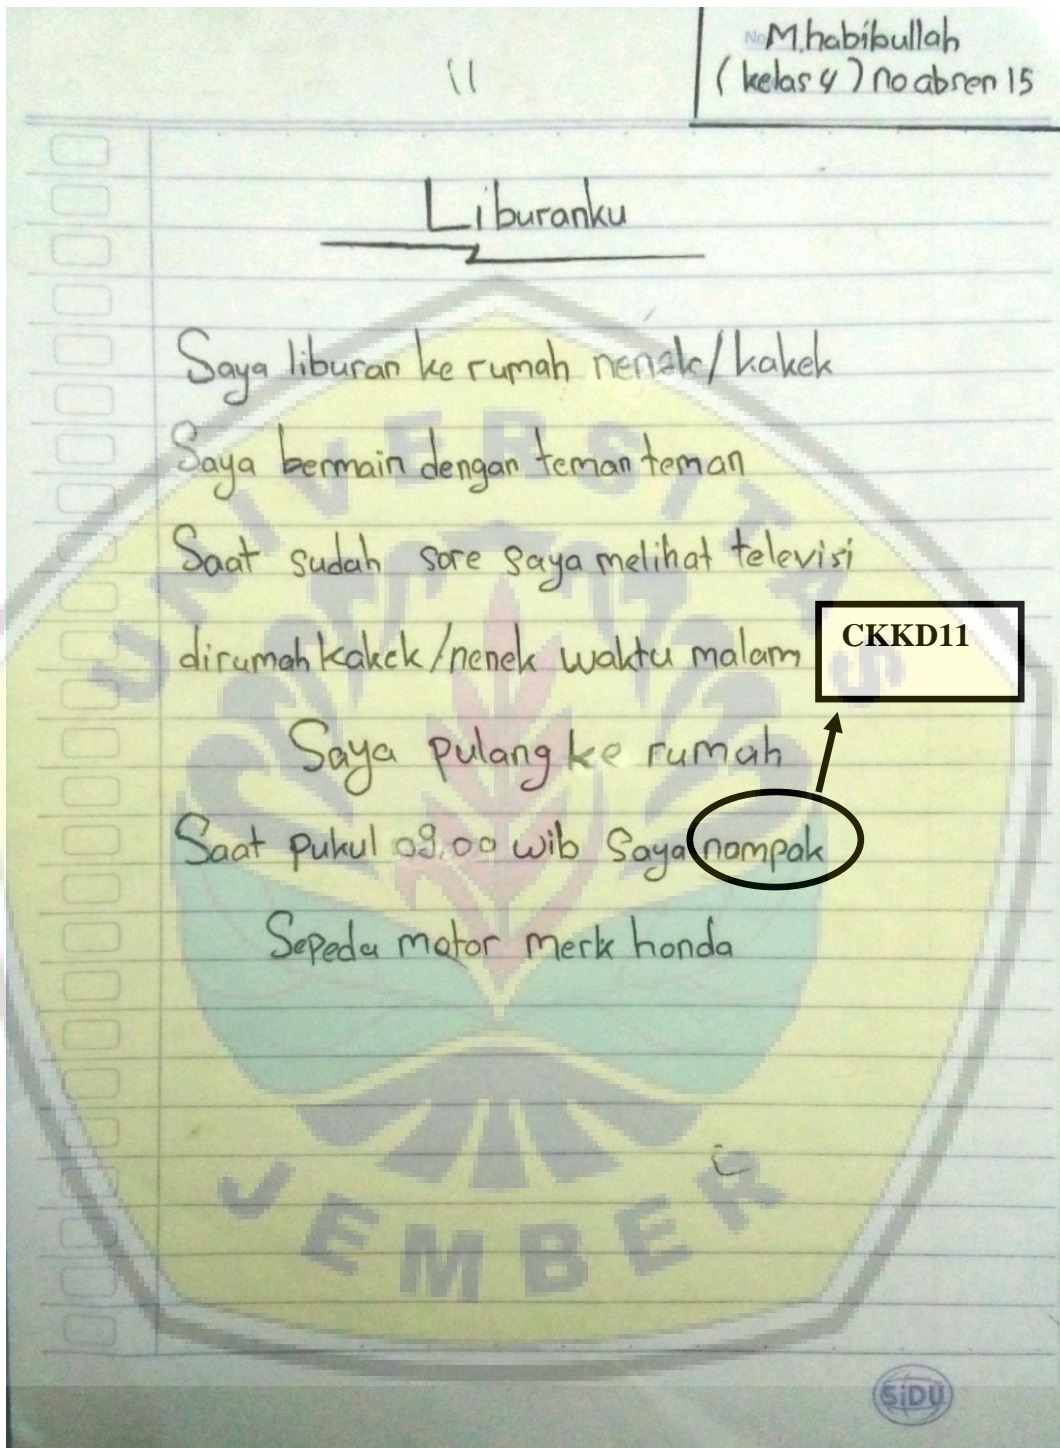 No M.habibullah
(kelas 4) no absen 15
11
Liburanku
Saya liburan ke rumah nenek/kakek
Saya bermain dengan teman teman
Saat sudah sore saya melihat televisi
dirumah kakek/nenek waktu malam
CKKD11
Saya pulang ke rumah
Saat pukul 09.00 wib Saya nampak
Sepeda motor merk honda
UNIVERSITAS
JEMBER
SiDU